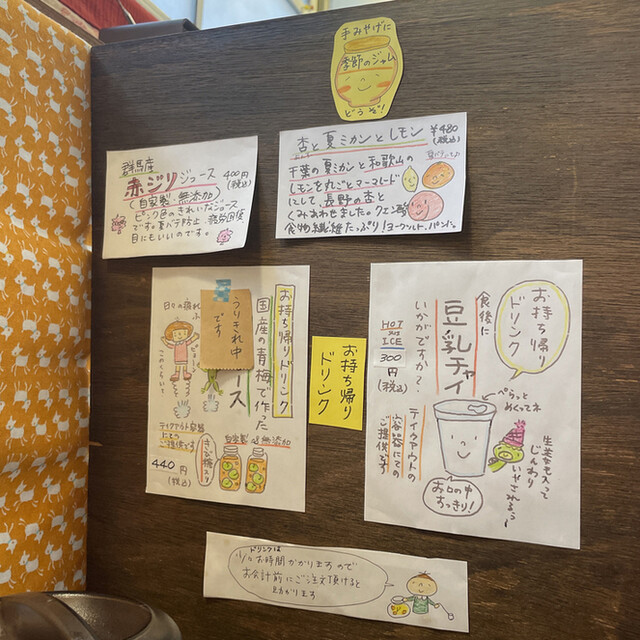 手みやげに
季節のジャム
どうぞ!
群馬産
赤ジソジュース 400円
(税込)
(自家製 無添加)
ピンク色のきれいなジュース
です。夏バテ防止 疲労回復
目にもいいのです。
杏と夏ミカンとレモン ¥480
(税込)
千葉の夏ミカンと和歌山の
レモンを丸ごとマーマレード
にして、長野の杏と
くみあわせました。クエン酸
食物繊維たっぷり!ヨーグルト、パンに。
お持ち帰りドリンク
国産の青梅で作った
ース
うりきれ中
です
日々の疲れ
テイクアウト容器
にて
ご提供です
きび糖入り
自家製 無添加
440円
(税込)
お持ち帰り
ドリンク
お持ち帰り
ドリンク
食後に
豆乳チャイ
いかがですか?
HOT
ICE
300円
(税込)
テイクアウトの
容器にての
ご提供です
ぺらっと
めくってネ
生姜も入って
じんわり
いやされるぅ~
お口の中
すっきり!
ドリンクは
少しお時間かかりますので
お会計前にご注文頂けると
助かります